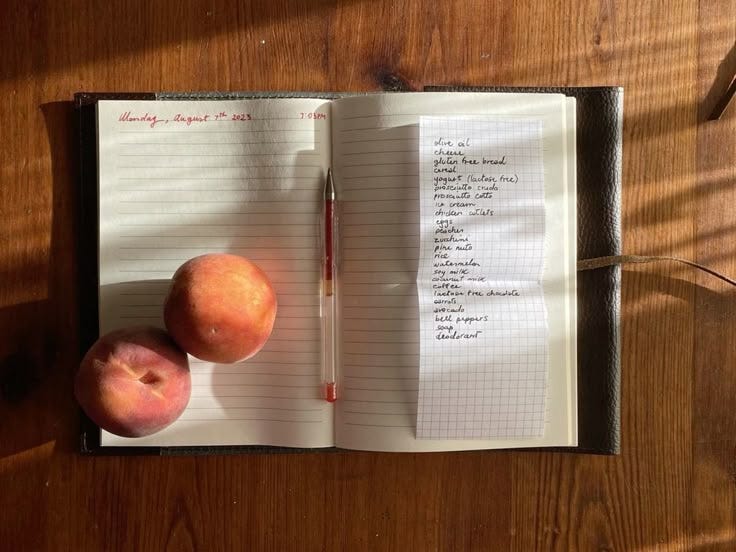 Monday, August 7th 2023 7:03PM
olive oil
cheese
gluten free bread
cereal
yogurt (lactose free)
prosciutto crudo
prosciutto cotto
ice cream
chicken cutlets
eggs
peaches
zucchini
pine nuts
rice
watermelon
soy milk
coconut milk
coffee
lactose free chocolate
carrots
avocado
bell peppers
soap
deodorant